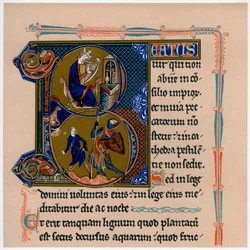 BEATUS
uir qui non
abiit in co
silio impior
et in uia pec
catorum no
stetit: et in ca
thedra pestile
tie non sedit.
Sed in lege
domini uoluntas eius: et in lege eius me
ditabitur die ac nocte
Et erit tanquam lignum quod plantatu
est secus decursus aquarum: quod fruc